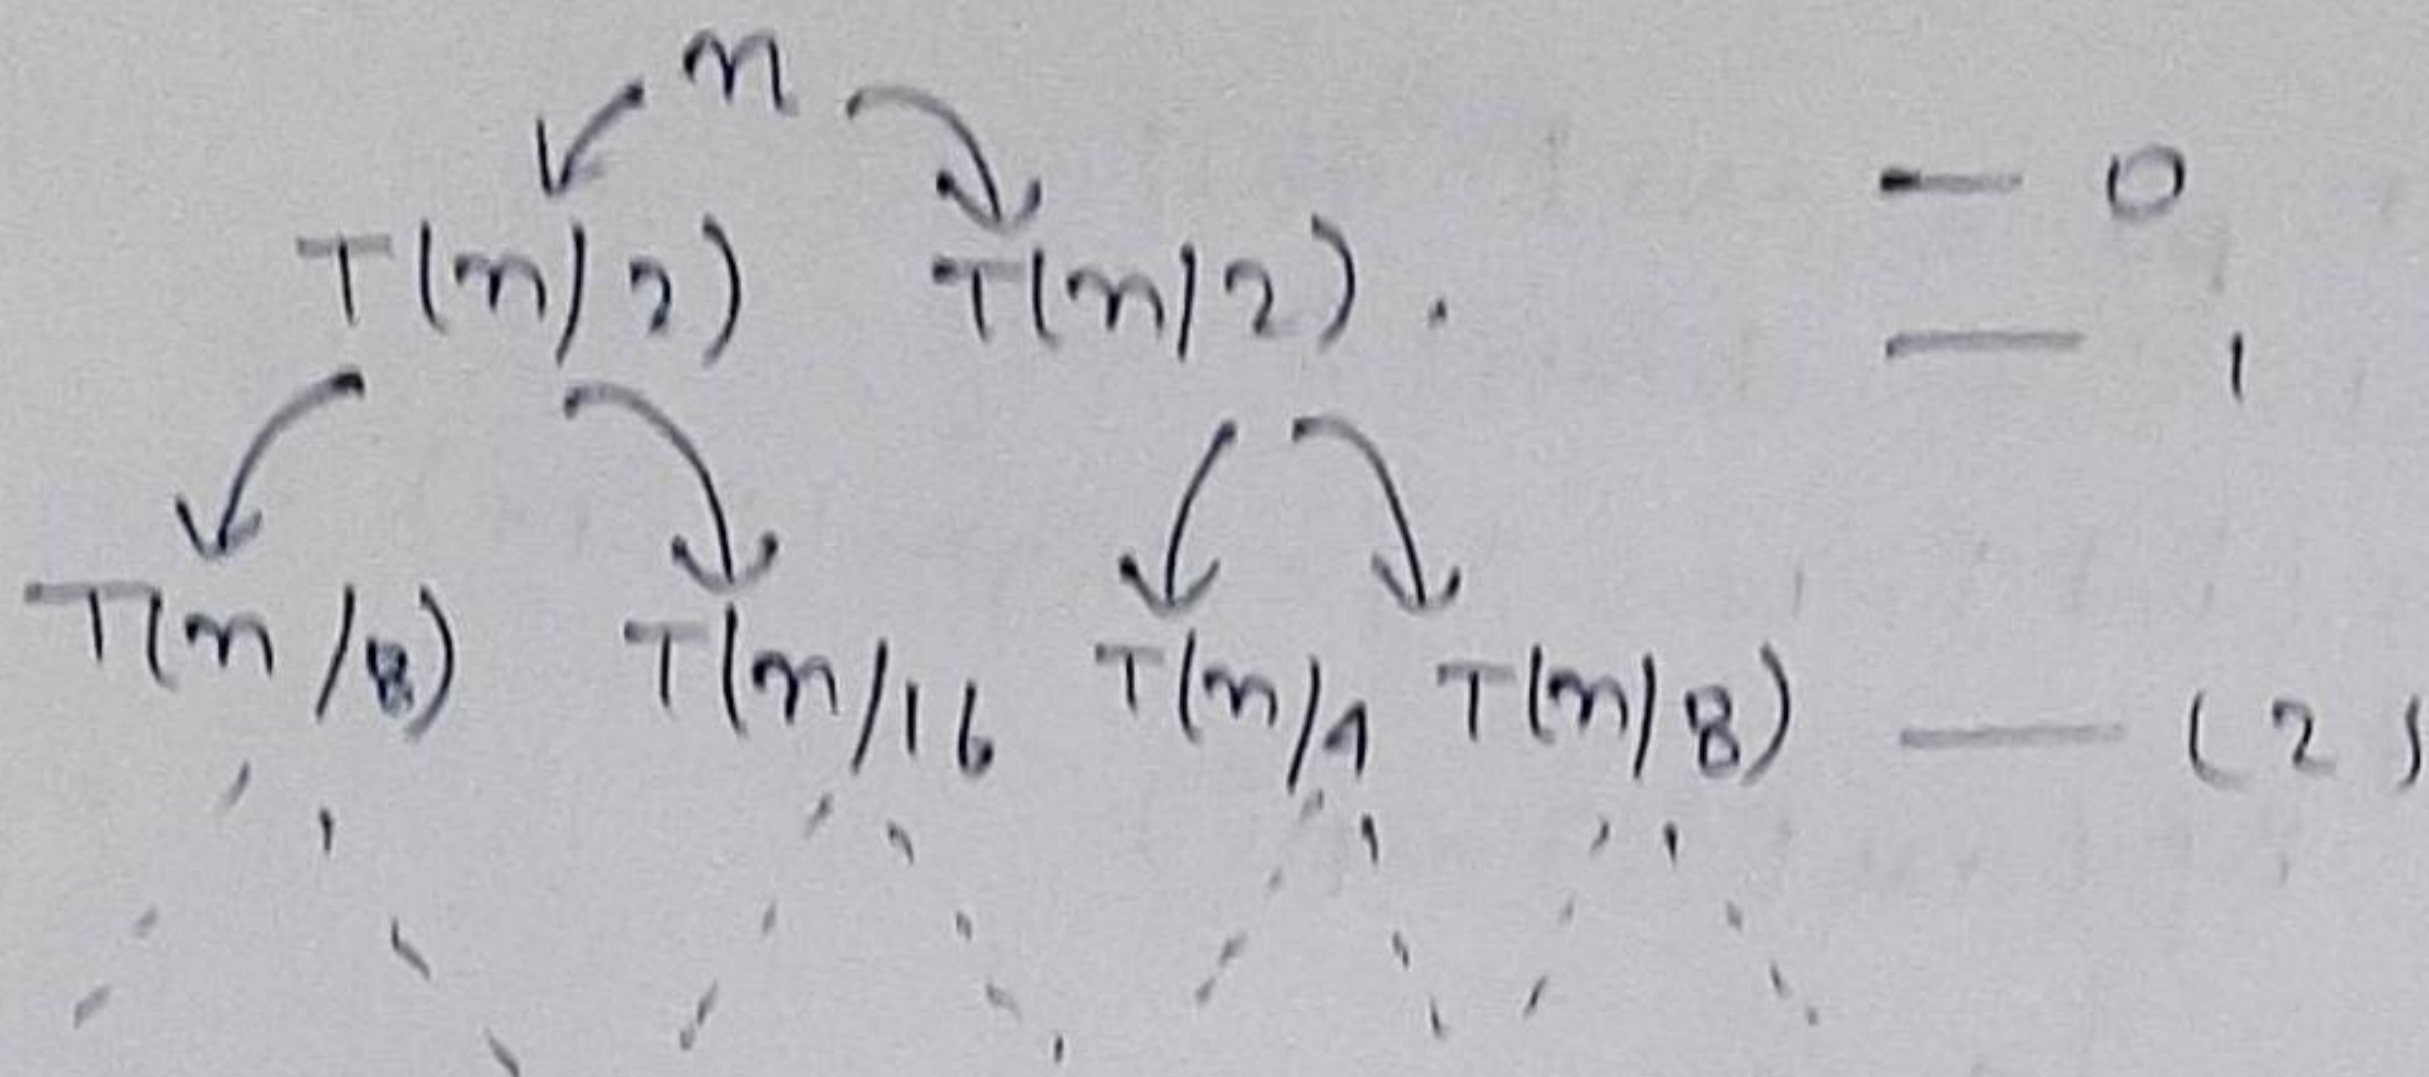 n
— 0
T(n/2) T(n/2).
— 1
T(n/8) T(n/16 T(n/4 T(n/8) — (2)